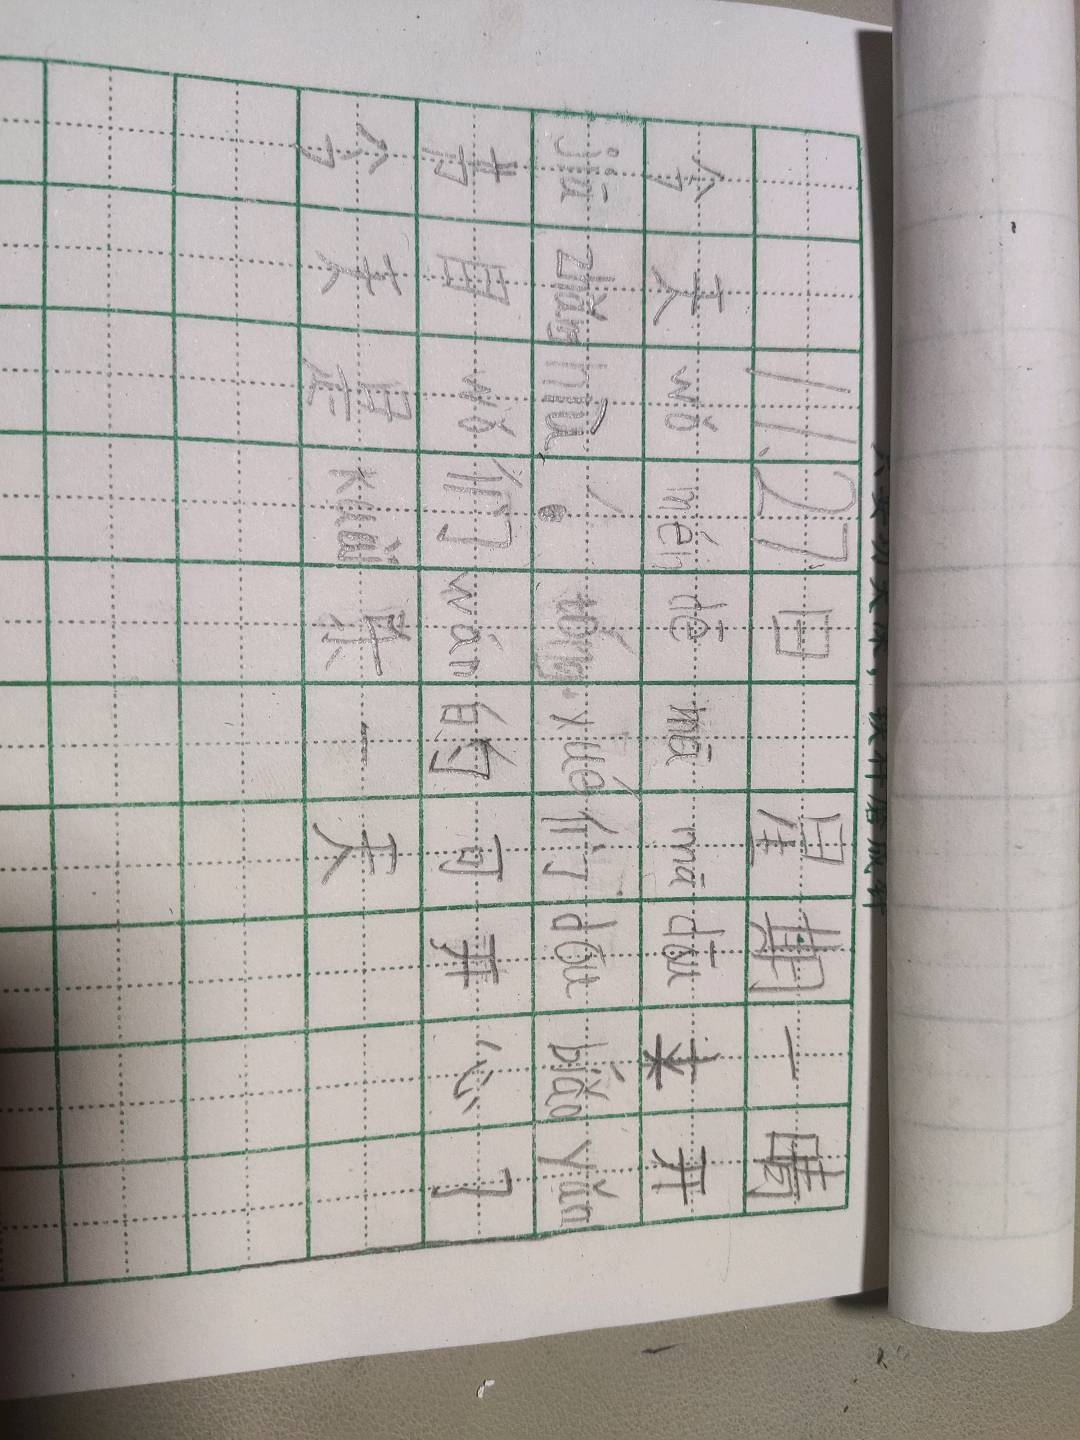 11.27日 星期一 晴
今天wǒ mén dē mā mā dōu来开
jiā zhǎng huì。tóng xué们dōu biǎo yǎn
节目wǒ们wán的可开心了
今天是kuài乐一天